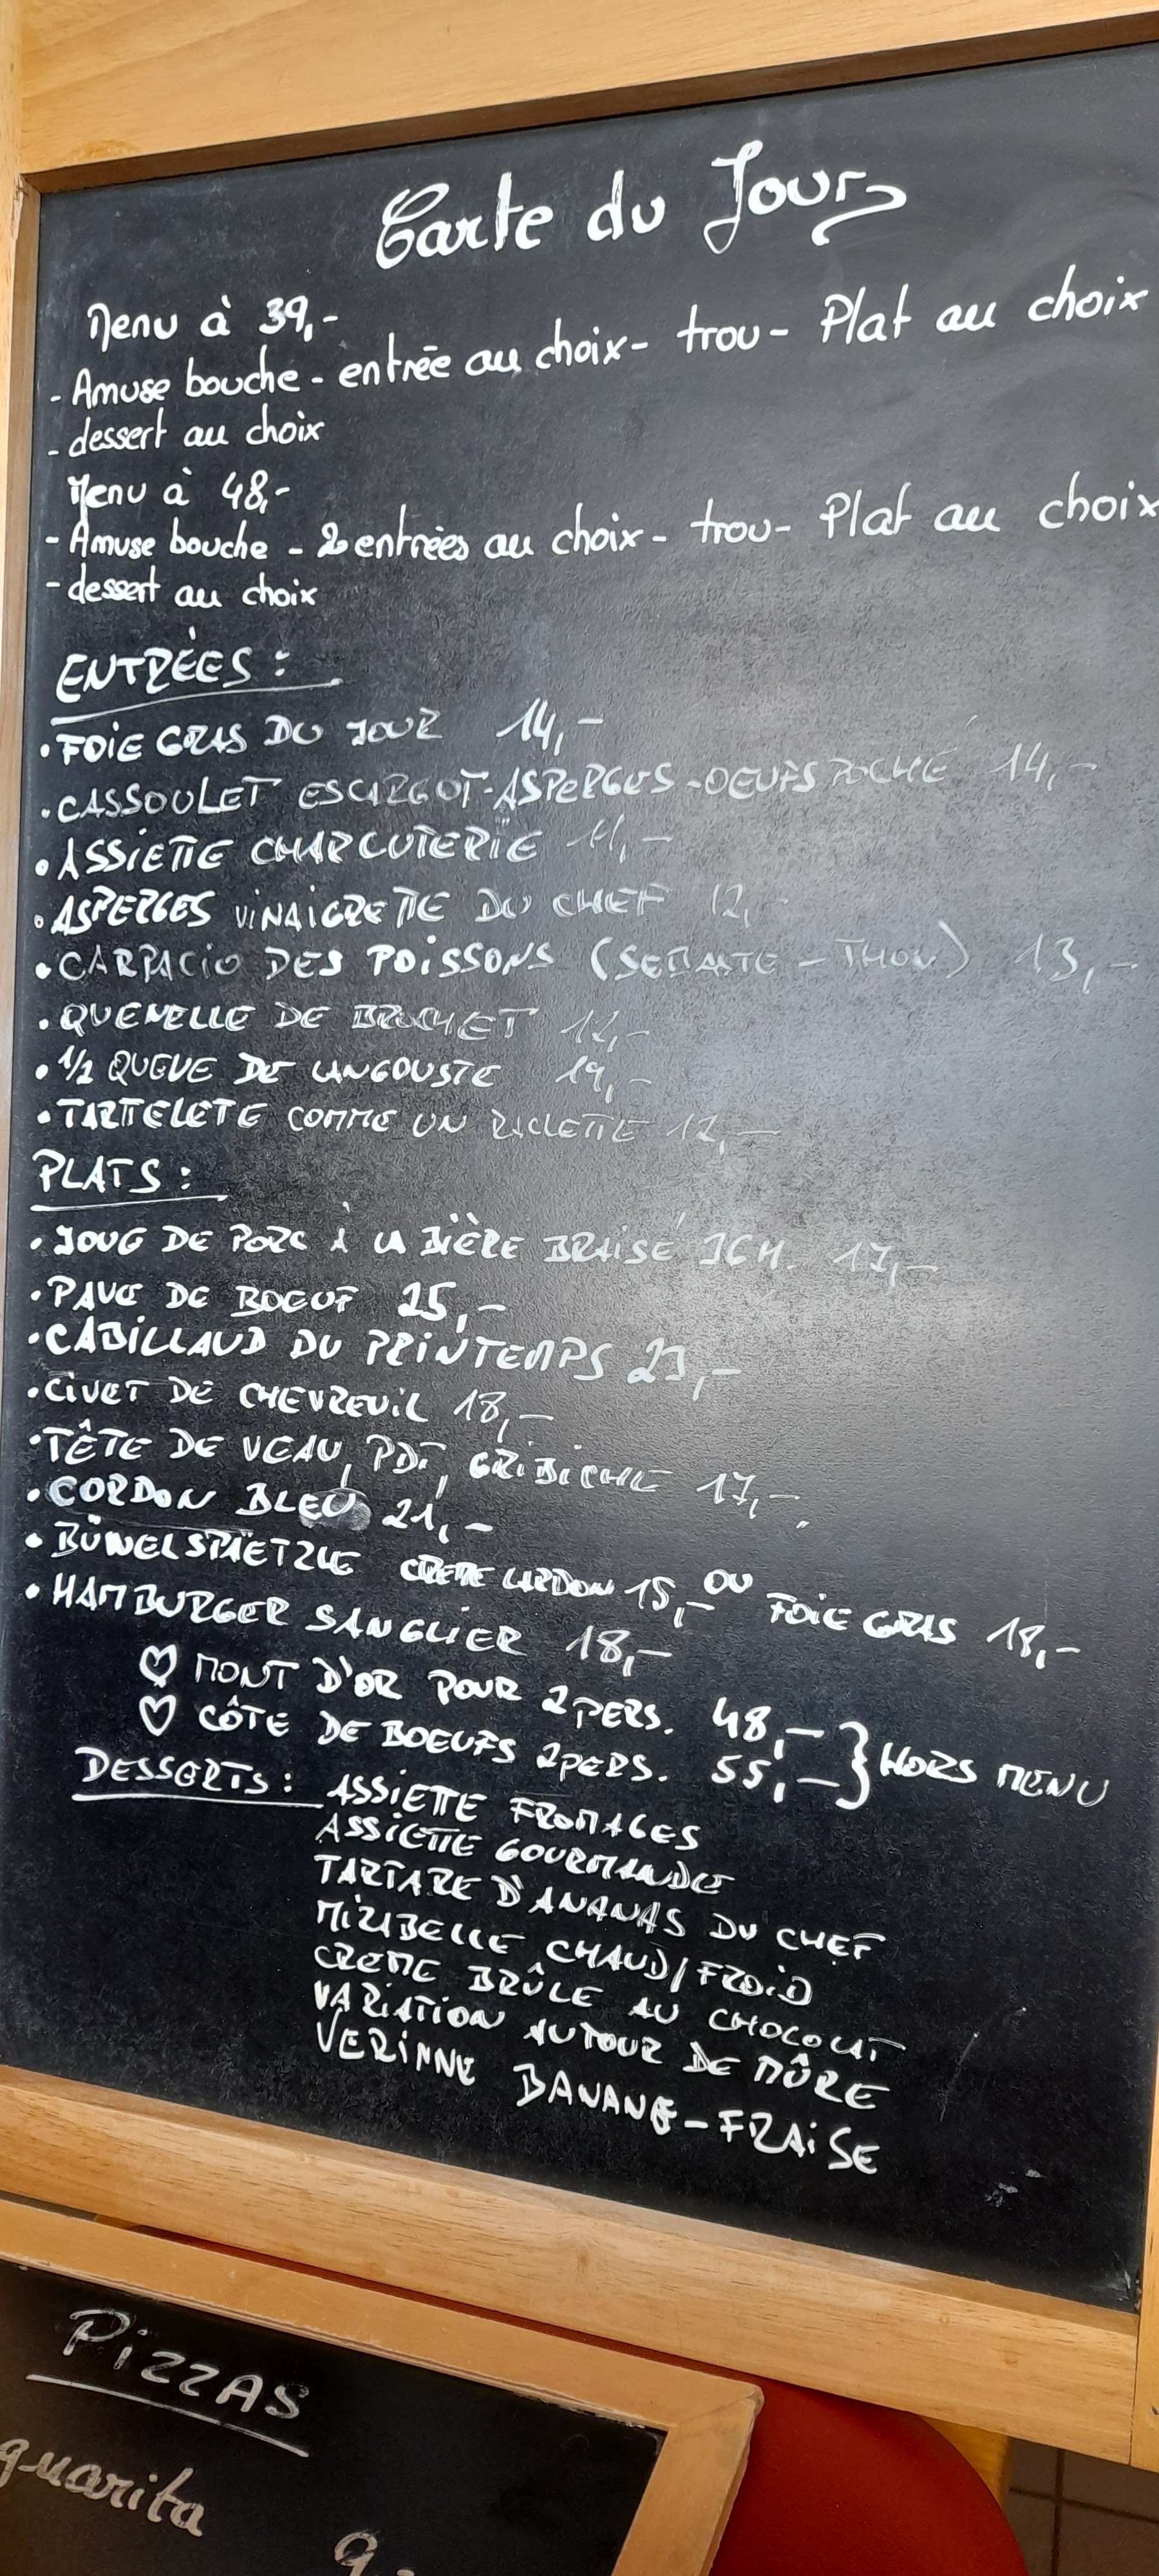 Carte du Jour
Menu à 39,-
- Amuse bouche - entrée au choix - trou - Plat au choix
- dessert au choix
Menu à 48,-
- Amuse bouche - 2 entrées au choix - trou - Plat au choix
- dessert au choix
ENTRÉES :
• FOIE GRAS DU JOUR 14,-
• CASSOULET ESCARGOT-ASPERGES-OEUFS POCHÉ 14,-
• ASSIETTE CHARCUTERIE 11,-
• ASPERGES VINAIGRETTE DU CHEF 12,-
• CARPACIO DES POISSONS (SEBASTE - THON) 13,-
• QUENELLE DE BROCHET 12,-
• 1/2 QUEUE DE LANGOUSTE 19,-
• TARTELETE COMME UN RACLETTE 12,-
PLATS :
• JOUG DE PORC À LA BIÈRE BRAISÉ 36H. 17,-
• PAVE DE BOEUF 25,-
• CABILLAUD DU PRINTEMPS 23,-
• CIVET DE CHEVREUIL 18,-
• TÊTE DE VEAU, PDT, GRIBICHE 17,-
• CORDON BLEU 21,-
• BÜWELSPAETZLE CREME LARDON 15,- OU FOIE GRAS 18,-
• HAMBURGER SANGLIER 18,-
♡ MONT D'OR POUR 2 PERS. 48,-
♡ CÔTE DE BOEUFS 2 PERS. 55,- } HORS MENU
DESSERTS : ASSIETTE FROMAGES
ASSIETTE GOURMANDE
TARTARE D'ANANAS DU CHEF
MIRABELLE CHAUD/FROID
CREME BRÛLE AU CHOCOLAT
VARIATION AUTOUR DE MÛRE
VERINNE BANANE-FRAISE
PIZZAS
guarita 9,-